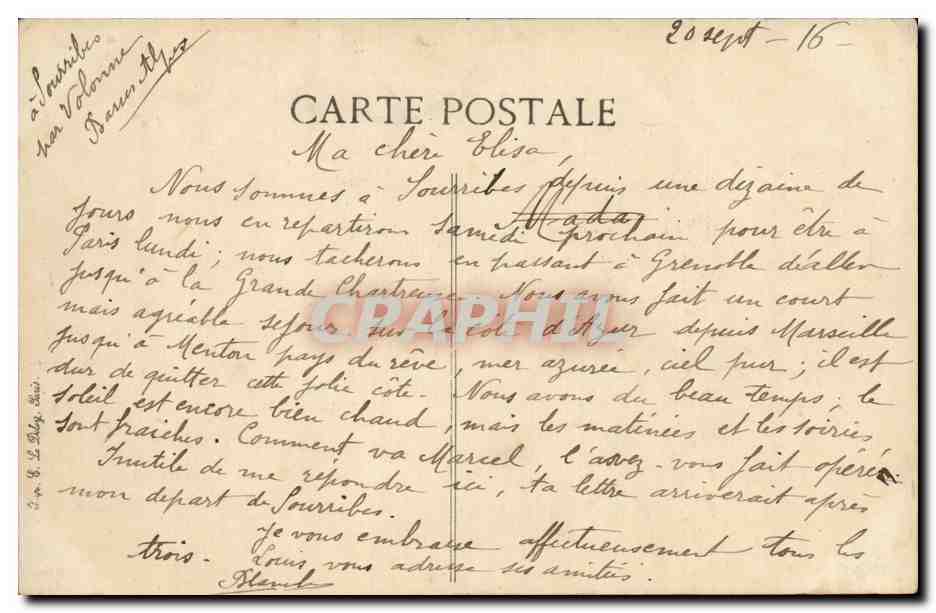 20 sept - 16 -
à Sourribes
par Volonne
Basses Alpes
CARTE POSTALE
Ma chère Elisa,
Nous sommes à Sourribes depuis une dizaine de
jours nous en repartirons samedi prochain pour être à
Paris lundi ; nous tacherons en passant à Grenoble d'aller
jusqu'à la Grande Chartreuse. Nous avons fait un court
mais agréable sejour sur la cote d'Azur depuis Marseille
jusqu'à Menton pays du rêve, mer azurée, ciel pur ; il est
dur de quitter cette jolie côte. Nous avons du beau temps ; le
soleil est encore bien chaud, mais les matinées et les soirées
sont fraiches. Comment va Marcel, l'avez-vous fait opérer
Inutile de me repondre ici, ta lettre arriverait après
mon depart de Sourribes.
Je vous embrasse affectueusement tous les
trois. Louis vous adresse ses amitiés.
Blanche
CRAPHIL